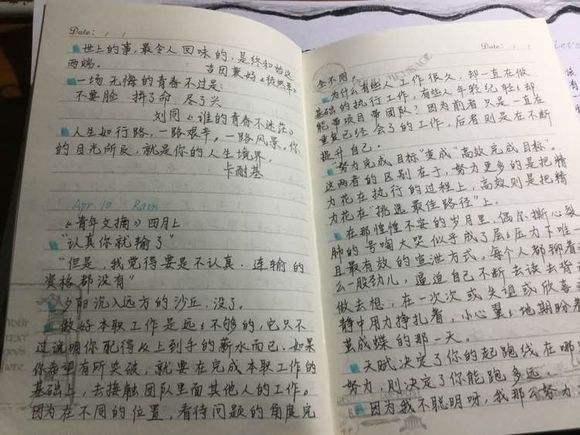 Date:
世上的事,最令人回味的,是终和始这
两端。
吉因裹妙《纯熬年》
一场无悔的青春不过是:
不要脸 拼了命 尽了兴
刘同《谁的青春不迷茫》
人生如行路,一路艰辛,一路风景。你
的目光所及,就是你的人生境界。
卡耐基
Apr 10 Rain
《青年文摘》四月上
“认真你就输了”
“但是,我觉得要是不认真,连输的
资格都没有”
夕阳沉入远方的沙丘,没了。
做好本职工作是远远不够的,它只不
过说明你配得以上到手的薪水而已。如果
你希望有所突破,就要在完成本职工作的
基础上,去接触团队里面其他人的工作。
因为在不同的位置,看待问题的角度完
Date:
全不同。
为什么有些人工作很久,却一直在做
基础的执行工作,有些人年轻轻轻却
能带项目带团队?因为前者只是一直在
重复已经会了的工作,后者则是在不断
提升自己。
“努力完成目标”变成“高效完成目标”。
这两者的区别在于,努力更多的是把精
力花在执行的过程上,高效则是把精
力花在“挑选最佳路径”上。
在那惶惶不安的岁月里,偶尔撕心裂
肺的号啕大哭似乎成了层层压力下唯一
且最有效的宣泄方式,每个人都铆着
么一股劲儿,逼迫自己不断去读去背
做去想,在一次次或失望或欣喜
静中用力挣扎着,小心翼翼地期盼
茧成蝶的那一天。
天赋决定了你的起跑线在哪
努力,则决定了你能跑多远。
因为我不聪明呀,我那么努力